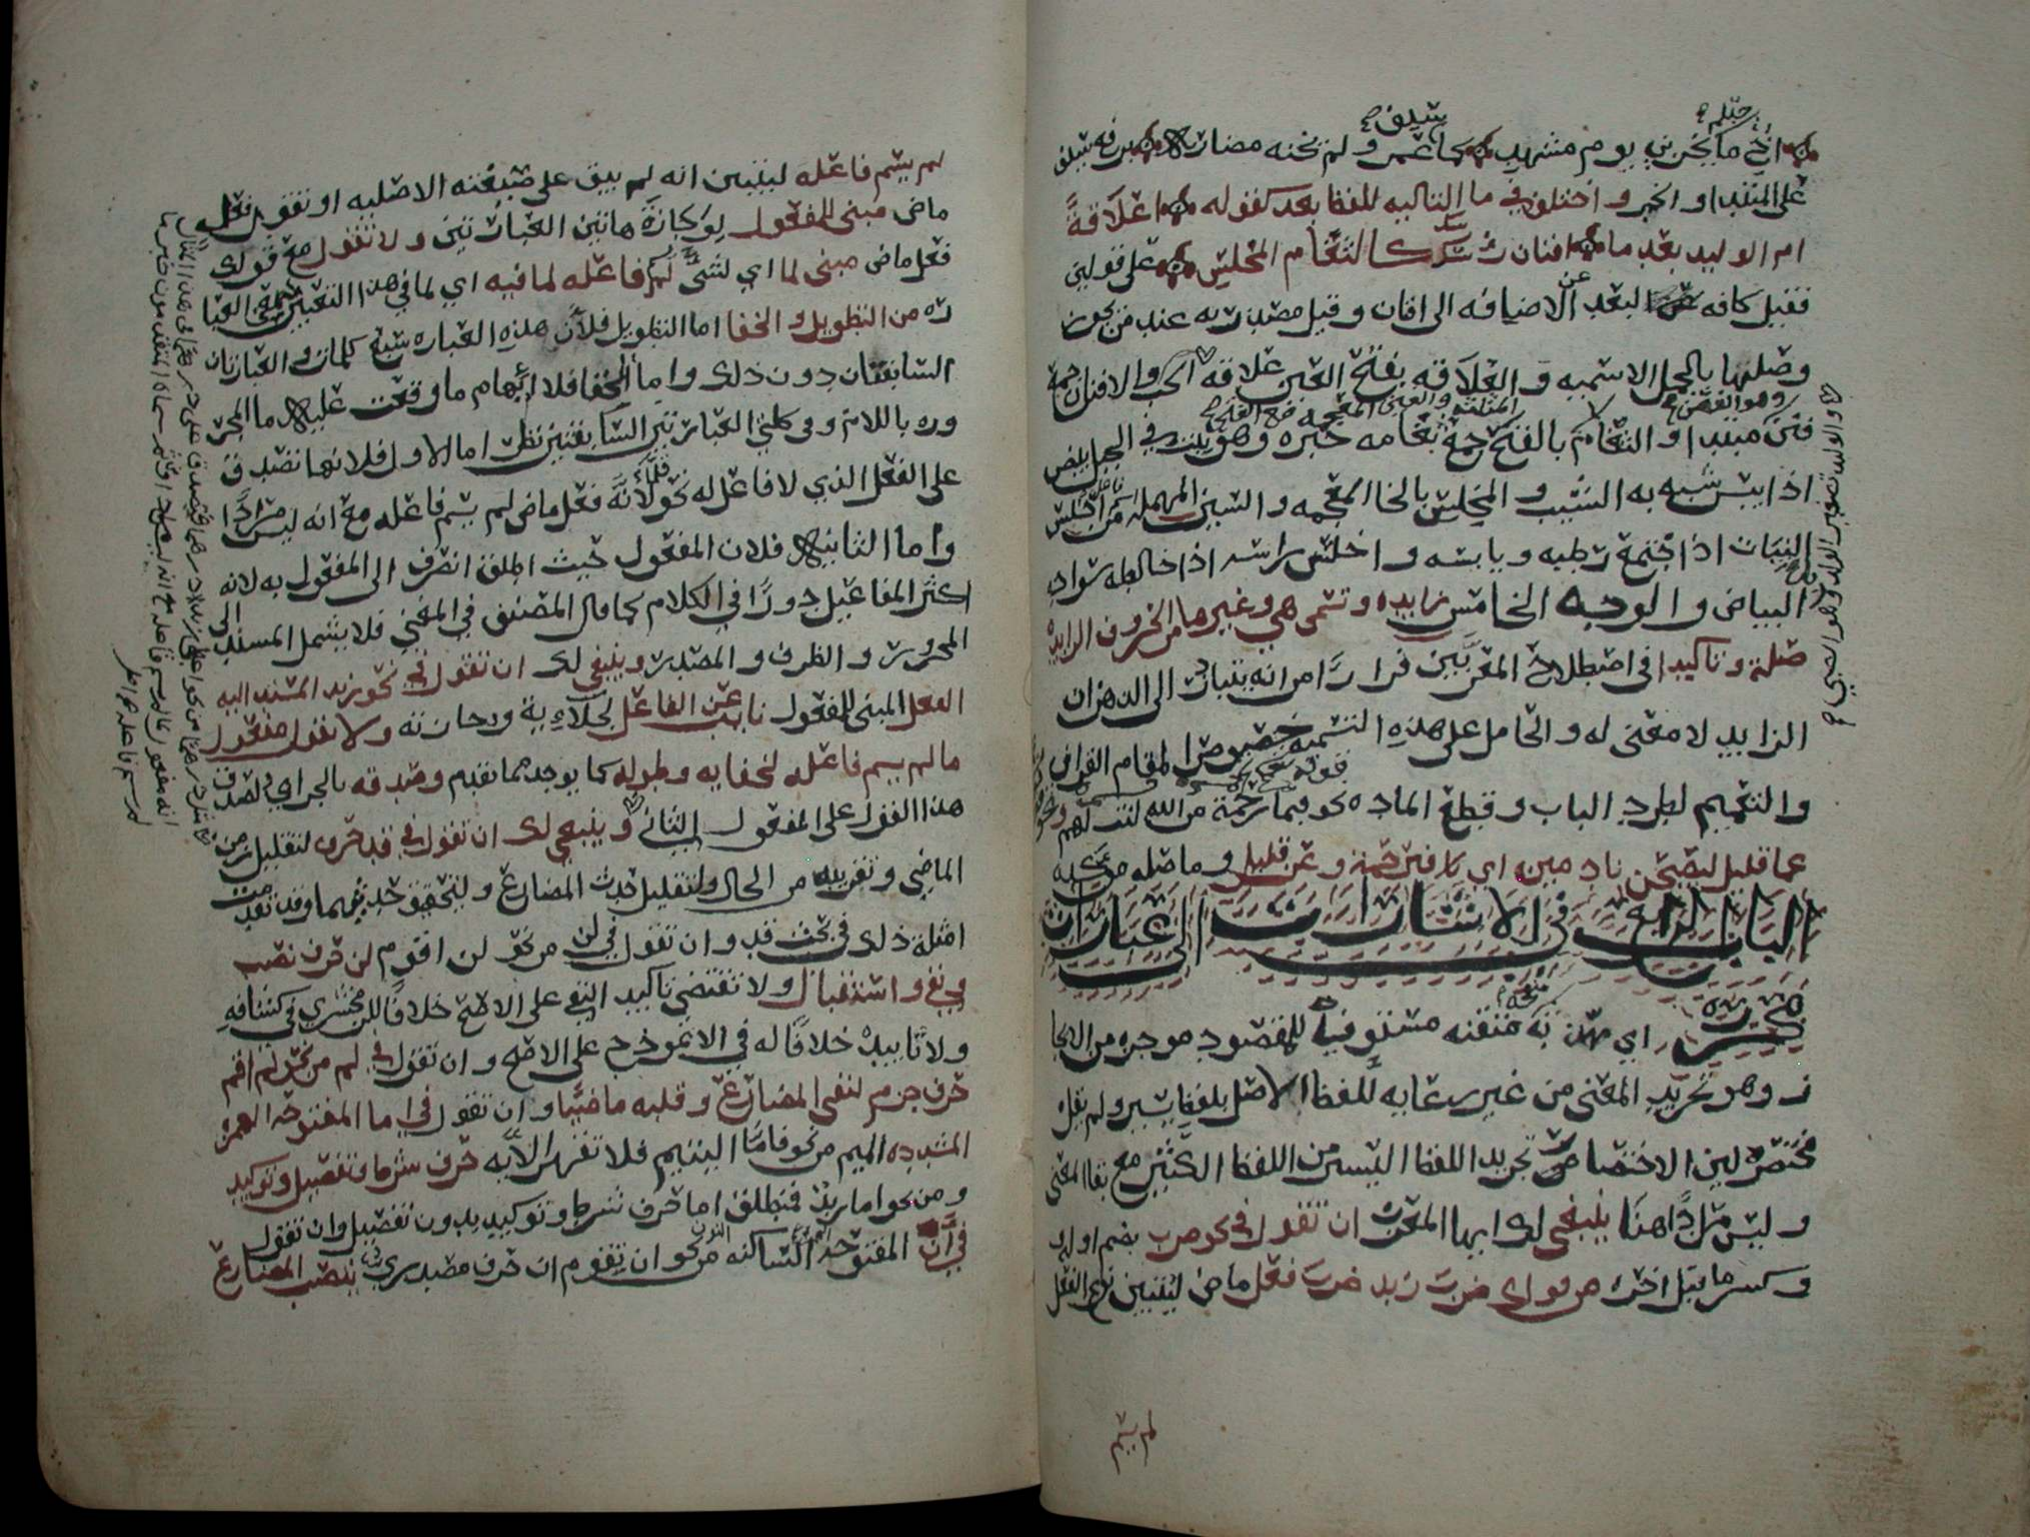 اخ ما جد لم يخزني يوم مشهد كما سيف عمرو لم تخنه مضاربه برفع سيف
على المبتدا والخبر واختلف في ما التاليه للفظ بعد كقوله اعلاقةً
ام الوليد بعد ما افنان راسك كالثغام المخلس على قولين
فقيل كافه لبعد عن الاضافه الى افنان وقيل مصدريه عند من يجوز
وصلها بالجمل الاسميه والعلاقه بفتح العين علاقه الحب والافنان جمع
فنن وهو الغصن مبتدا والثغام بالفتح جمع ثغامه خبره وهو نبت في الجبل يبيض
اذا يبس شبه به الشيب والمخلس بالخا المعجمه والسين المهمله من اخلس
النبات اذا اجتمع رطبه ويابسه واخلس راسه اذا خالطه سواد
البياض والوجه الخامس زايده وتسمى هي وغيرها من الحروف الزايده
صلة وتاكيدا في اصطلاح المعربين فرارًا من انه يتبادر الى الذهن ان
الزايد لا معنى له والحامل على هذه التسميه خصوص المقام القراني
والتعميم لطرد الباب وقطع الماده نحو فبما رحمة من الله لنت لهم
عما قليل ليصبحن نادمين اي فبرحمة وعن قليل وما صله
الباب الرابع في الاشارات الى عبارات
محررة اي مهذبه منقحه متقنه مستوفية للمقصود موجزه من الايجا
ز وهو تجريد المعنى من غير رعايه للفظ الاصل بلفظ يسير ولم يقل
مختصره لين الاختصار تجريد اللفظ اليسير من اللفظ الكثير مع بقا المعنى
وليس مرادًا هنا ينبغي لك ايها المعرب ان تقول في نحو ضرب بضم اوله
وكسر ما قبل اخره من قولك ضرب زيد ضرب فعل ماض ليتبين نوع الفعل
لم يسم
والوليد تصغير الولد وهو الصبي
لم يسم فاعله ليتبين انه لم يبق على صيغته الاصليه او تقول فعل
ماض مبني للمفعول هاتين العبارتين ولا تقول مع قولك
فعل ماض مبني لما اي لشي لم يسم فاعله لما فيه اي لما في هذا التعبير العبا
ره من التطويل والخفا اما التطويل فلان هذه العباره سبع كلمات والعبارتان
السابقتان دون ذلك واما الخفا فلابهام ما وقعت عليه ما المجر
وره باللام وفي كلتي العبارتين السابقتين نظر اما الاول فلانها تصدق
على الفعل الذي لا فاعل له نحو قلما لانه فعل ماض لم يسم فاعله مع انه ليس مرادًا
واما الثانيه فلان المفعول حيث اطلق انصرف الى المفعول به لانه
اكثر المفاعيل دورًا في الكلام كما قال المصنف في المغني فلا يشمل المسند الى
المجرور والظرف والمصدر وينبغي لك ان تقول في نحو زيد المسند اليه
الفعل المبني للمفعول نايب عن الفاعل لجلاءيه ووجازته ولا تقول مفعول
ما لم يسم فاعله لخفايه وطوله كما يوجد مما تقدم وصدقه بالجر اي ولصدق
هذا القول على المفعول الثاني وينبغي لك ان تقول في قد حرف لتقليل زمن
الماضي وتقريبه من الحال ولتقليل حدث المضارع ولتحقيق حدثيهما وقد تقدمت
امثلة ذلك في بحث قد وان تقول في لن من نحو لن اقوم لن حرف نصب
ونفي واستقبال ولا تقتضي تاكيد النفي على الاصح خلافًا للزمخشري في كشافه
ولا تابيده خلافًا له في الانموذج على الاصح وان تقول في لم من نحو لم اقم
حرف جزم لنفي المضارع وقلبه ماضيا وان تقول في اما المفتوحه الهمزة
المشدده الميم من نحو فاما اليتيم فلا تقهر الايه حرف شرط وتفصيل وتوكيد
ومن نحو اما زيد فمنطلق اما حرف شرط وتوكيد بدون تفصيل وان تقول
في أن المفتوحة الهمزه الساكنه النون من نحو ان يقوم ان حرف مصدري ينصب المضارع